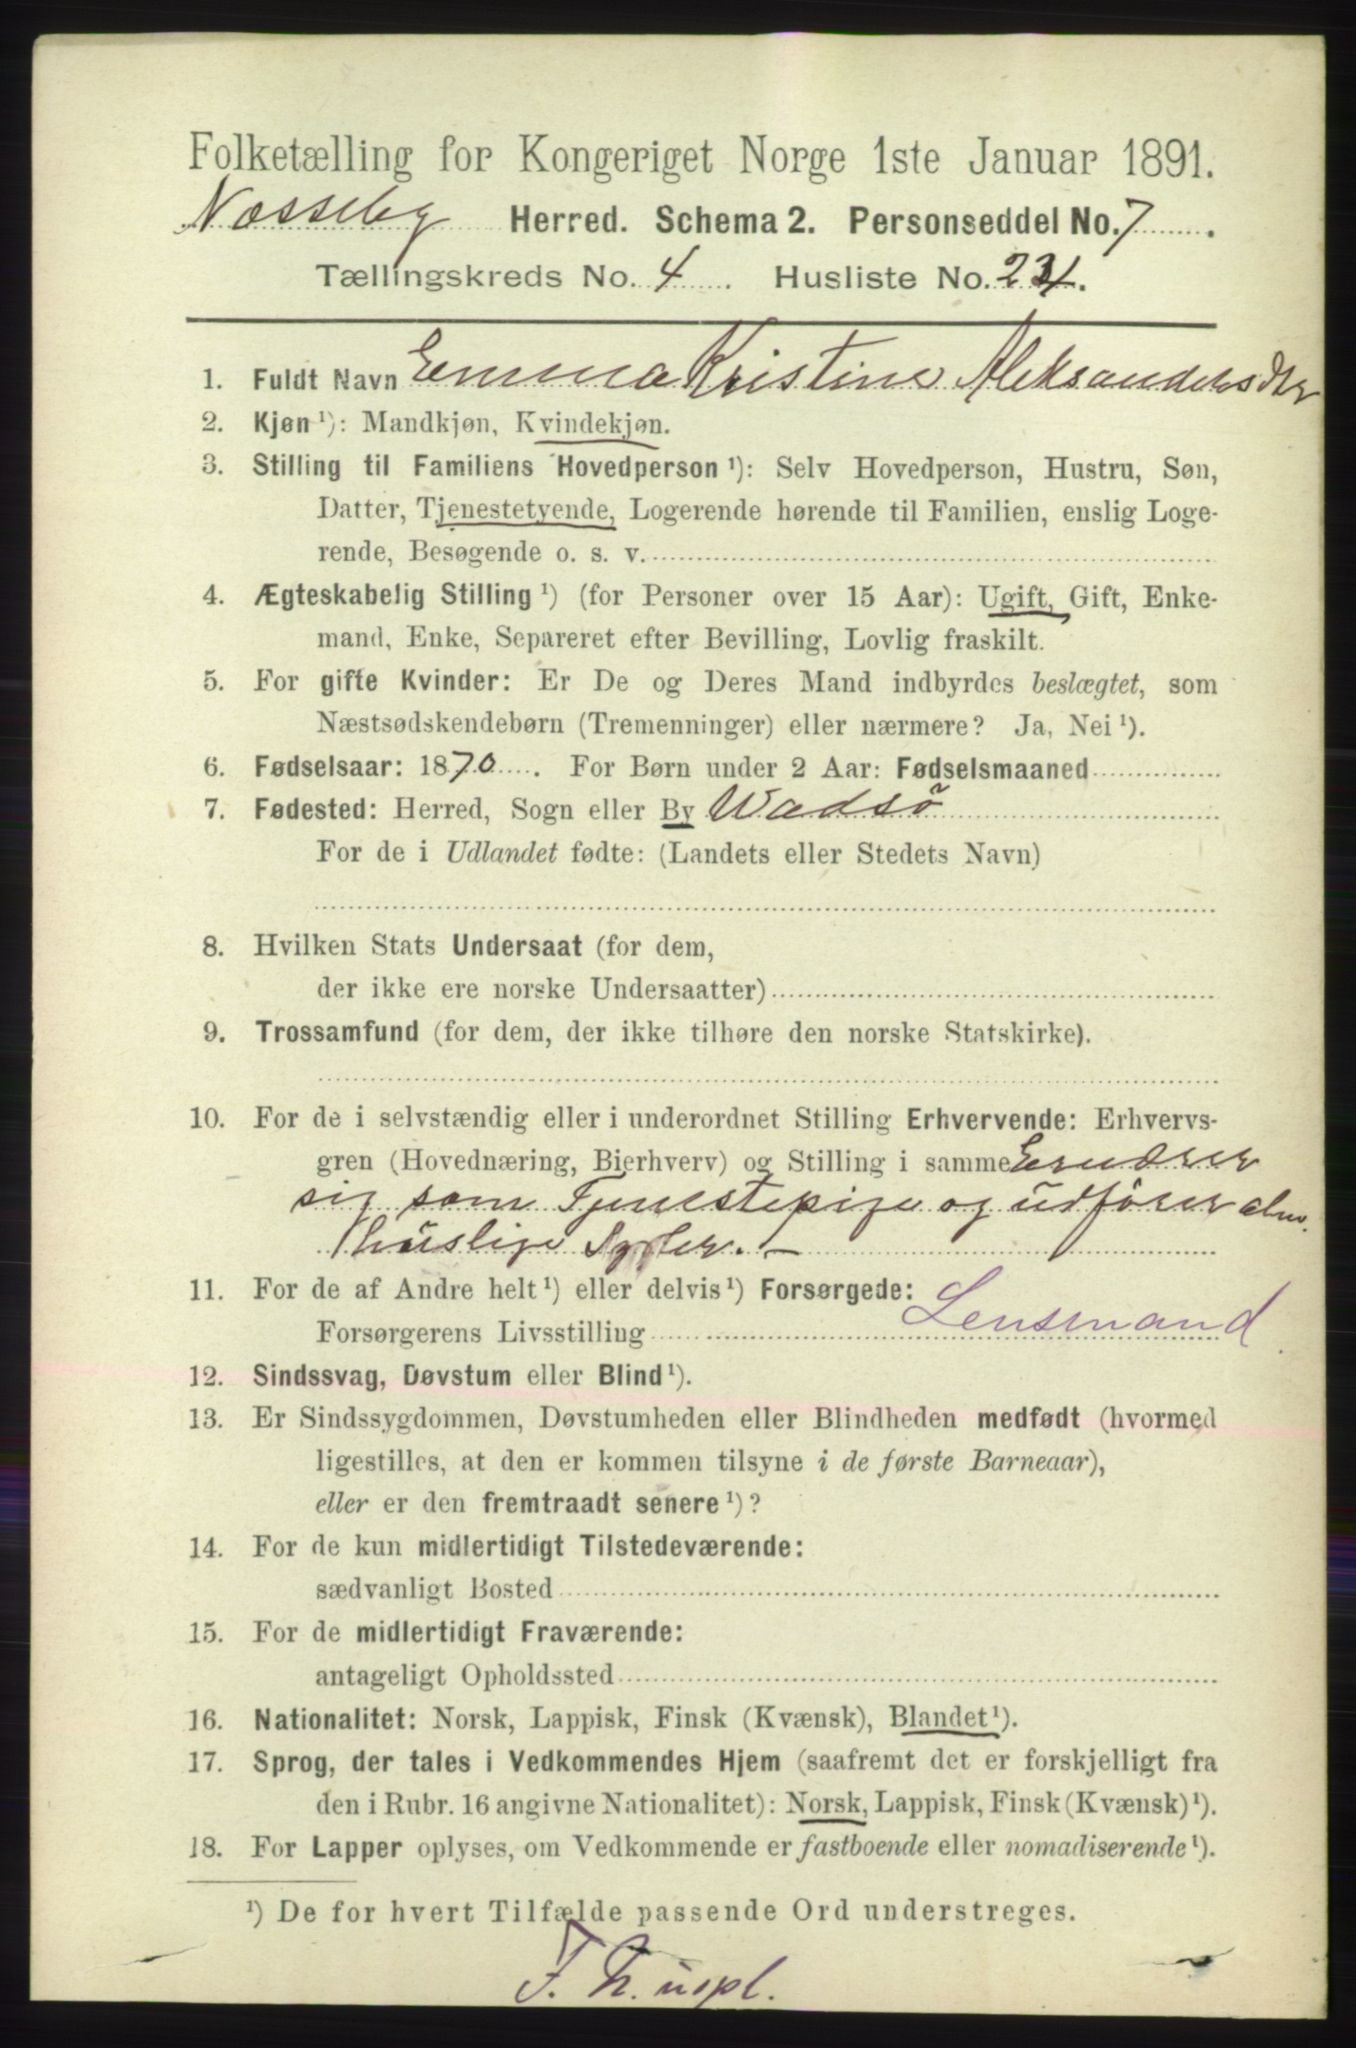 Folketælling for Kongeriget Norge 1ste Januar 1891.
Næsseby Herred. Schema 2. Personseddel No. 7.
Tællingskreds No. 4. Husliste No. 234.
1. Fuldt Navn Emma Kristine Aleksandersdtr
2. Kjøn ¹): Mandkjøn, Kvindekjøn.
3. Stilling til Familiens Hovedperson ¹): Selv Hovedperson, Hustru, Søn,
Datter, Tjenestetyende, Logerende hørende til Familien, enslig Loge-
rende, Besøgende o. s. v.
4. Ægteskabelig Stilling ¹) (for Personer over 15 Aar): Ugift, Gift, Enke-
mand, Enke, Separeret efter Bevilling, Lovlig fraskilt.
5. For gifte Kvinder: Er De og Deres Mand indbyrdes beslægtet, som
Næstsødskendebørn (Tremenninger) eller nærmere? Ja, Nei ¹).
6. Fødselsaar: 1870. For Børn under 2 Aar: Fødselsmaaned
7. Fødested: Herred, Sogn eller By Wadsö
For de i Udlandet fødte: (Landets eller Stedets Navn)
8. Hvilken Stats Undersaat (for dem,
der ikke ere norske Undersaatter)
9. Trossamfund (for dem, der ikke tilhøre den norske Statskirke).
10. For de i selvstændig eller i underordnet Stilling Erhvervende: Erhvervs-
gren (Hovednæring, Bierhverv) og Stilling i samme Ernærer
sig som Tjenestepige og udförer alm.
huslige Sysler. —
11. For de af Andre helt ¹) eller delvis ¹) Forsørgede:
Forsørgerens Livsstilling Lensmand
12. Sindssvag, Døvstum eller Blind ¹).
13. Er Sindssygdommen, Døvstumheden eller Blindheden medfødt (hvormed
ligestilles, at den er kommen tilsyne i de første Barneaar),
eller er den fremtraadt senere ¹)?
14. For de kun midlertidigt Tilstedeværende:
sædvanligt Bosted
15. For de midlertidigt Fraværende:
antageligt Opholdssted
16. Nationalitet: Norsk, Lappisk, Finsk (Kvænsk), Blandet ¹).
17. Sprog, der tales i Vedkommendes Hjem (saafremt det er forskjelligt fra
den i Rubr. 16 angivne Nationalitet): Norsk, Lappisk, Finsk (Kvænsk) ¹).
18. For Lapper oplyses, om Vedkommende er fastboende eller nomadiserende ¹).
¹) De for hvert Tilfælde passende Ord understreges.
F. N. uspl.